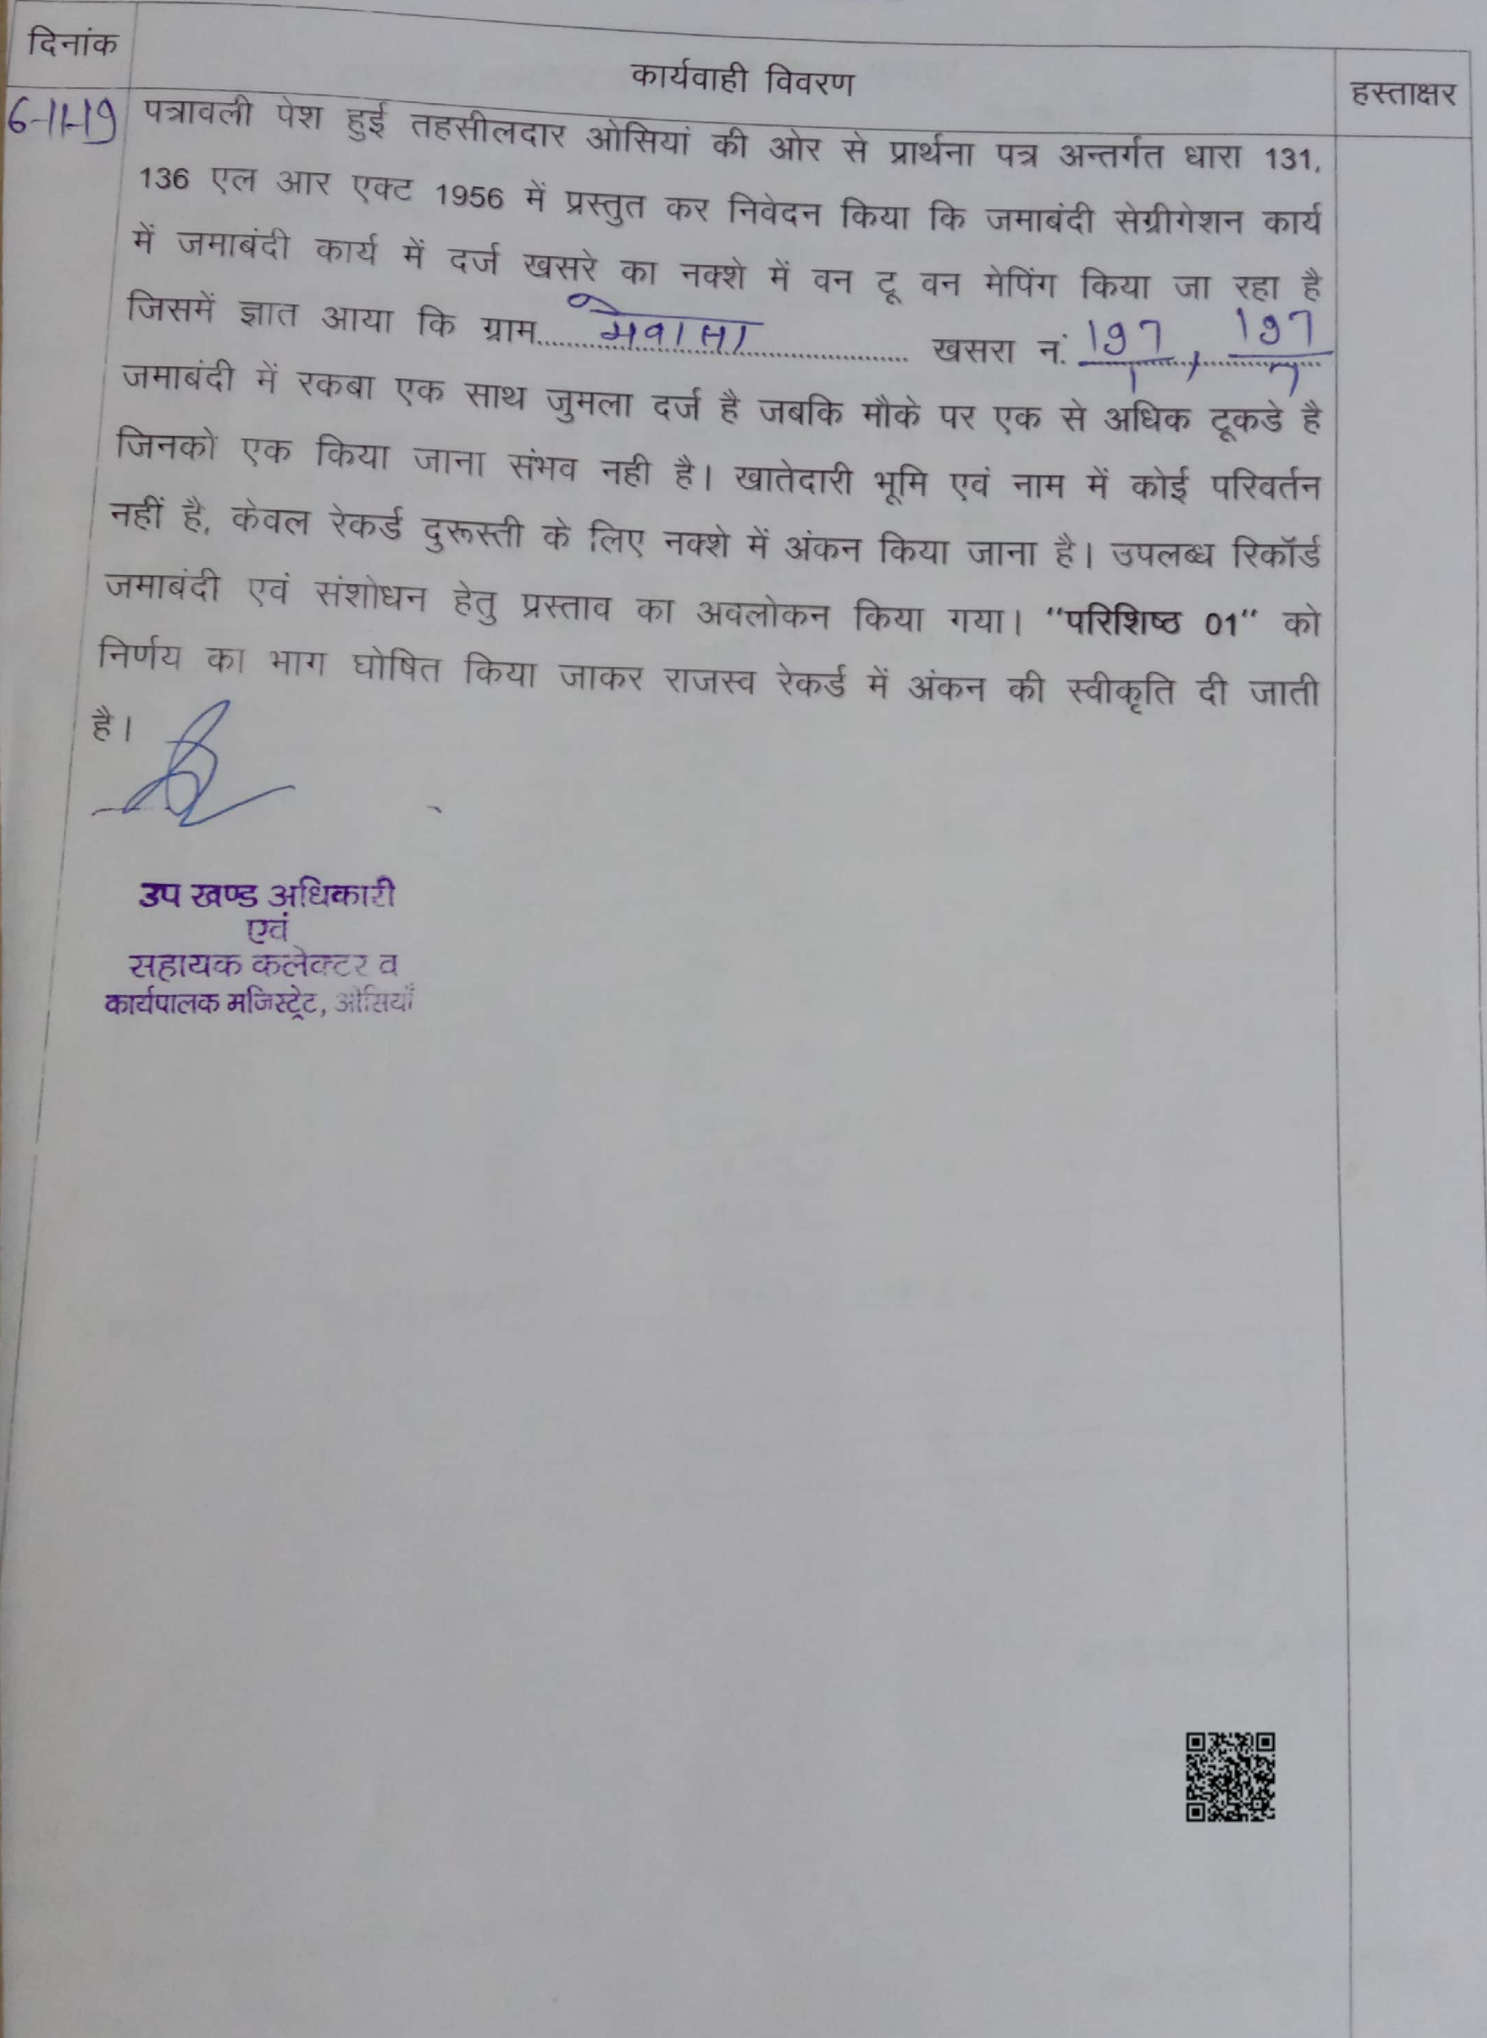 दिनांक
कार्यवाही विवरण
हस्ताक्षर
6-11-19
पत्रावली पेश हुई तहसीलदार ओसियां की ओर से प्रार्थना पत्र अन्तर्गत धारा 131,
136 एल आर एक्ट 1956 में प्रस्तुत कर निवेदन किया कि जमाबंदी सेग्रीगेशन कार्य
में जमाबंदी कार्य में दर्ज खसरे का नक्शे में वन टू वन मेपिंग किया जा रहा है
जिसमें ज्ञात आया कि ग्राम.....मेवासा..... खसरा नं. 197/1, 197/7
जमाबंदी में रकबा एक साथ जुमला दर्ज है जबकि मौके पर एक से अधिक टूकडे है
जिनको एक किया जाना संभव नही है। खातेदारी भूमि एवं नाम में कोई परिवर्तन
नहीं है, केवल रेकर्ड दुरूस्ती के लिए नक्शे में अंकन किया जाना है। उपलब्ध रिकॉर्ड
जमाबंदी एवं संशोधन हेतु प्रस्ताव का अवलोकन किया गया। "परिशिष्ठ 01" को
निर्णय का भाग घोषित किया जाकर राजस्व रेकर्ड में अंकन की स्वीकृति दी जाती
है।
उप खण्ड अधिकारी
एवं
सहायक कलेक्टर व
कार्यपालक मजिस्ट्रेट, ओसियाँ